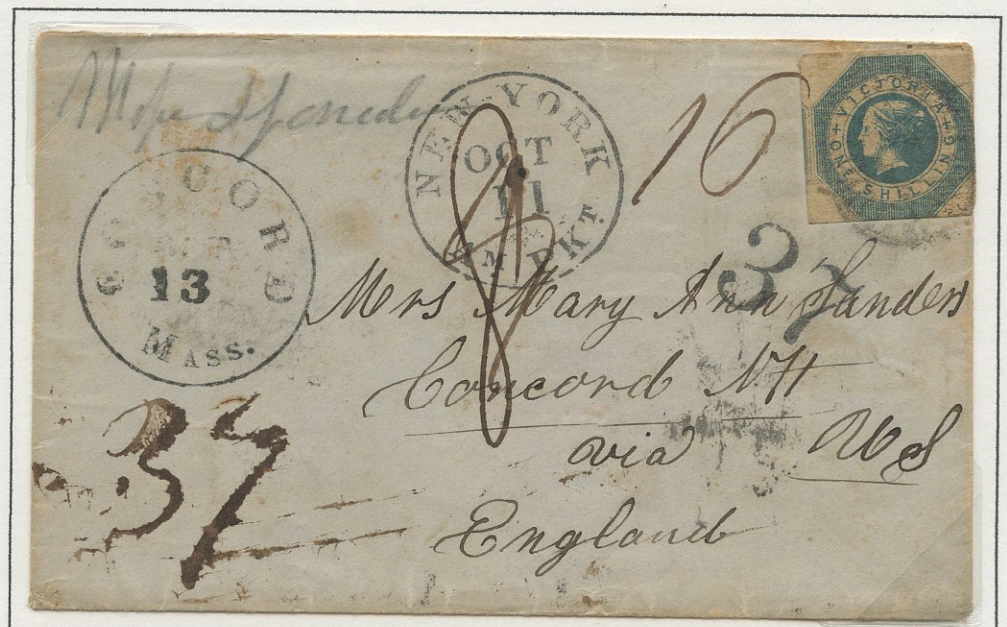 NEW-YORK
OCT
11
AM. PKT.
16
VICTORIA
ONE SHILLING
CONCORD
13
MASS.
37
Mrs Mary Ann Sanders
Concord NH
via US
England
37